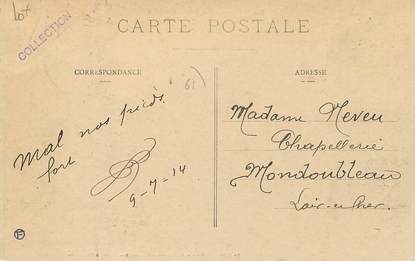 lot
COLLECTION
CARTE POSTALE
CORRESPONDANCE
61
Mal nos pieds
fort
9-7-14
ADRESSE
Madame Neveu
Chapellerie
Mondoubleau
Loir-et-Cher.